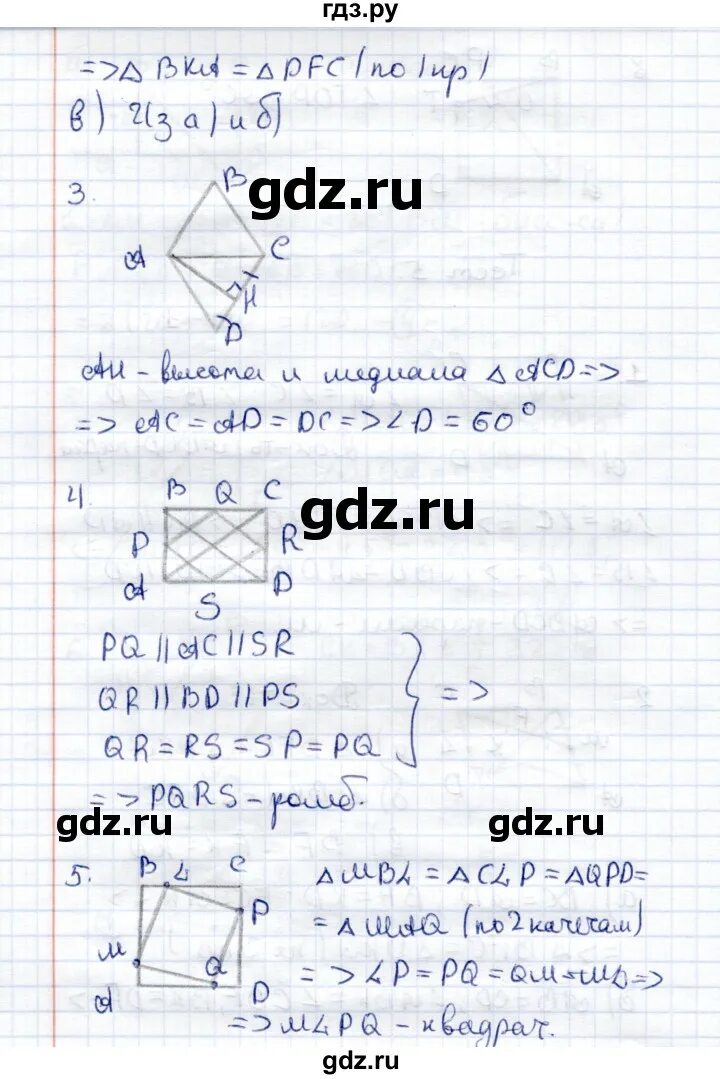 гдз.ру
=> △ BKA = △ DFC (по I пр)
в) 2(з а) и б)
3.
B
gdz.ru
A
C
H
D
AH - высота и медиана △ ACD =>
=> AC = AD = DC => ∠D = 60°
4.
B Q C
gdz.ru
P
R
A
D
S
PQ || AC || SR
QR || BD || PS
=>
QR = RS = SP = PQ
=> PQRS - ромб.
gdz.ru gdz.ru
5.
B L C
△ MBL = △ CLP = △ QPD =
P
= △ MAQ (по 2 катетам)
M
Q
=> LP = PQ = QM = ML =>
A
D
=> MLPQ - квадрат.
gdz.ru